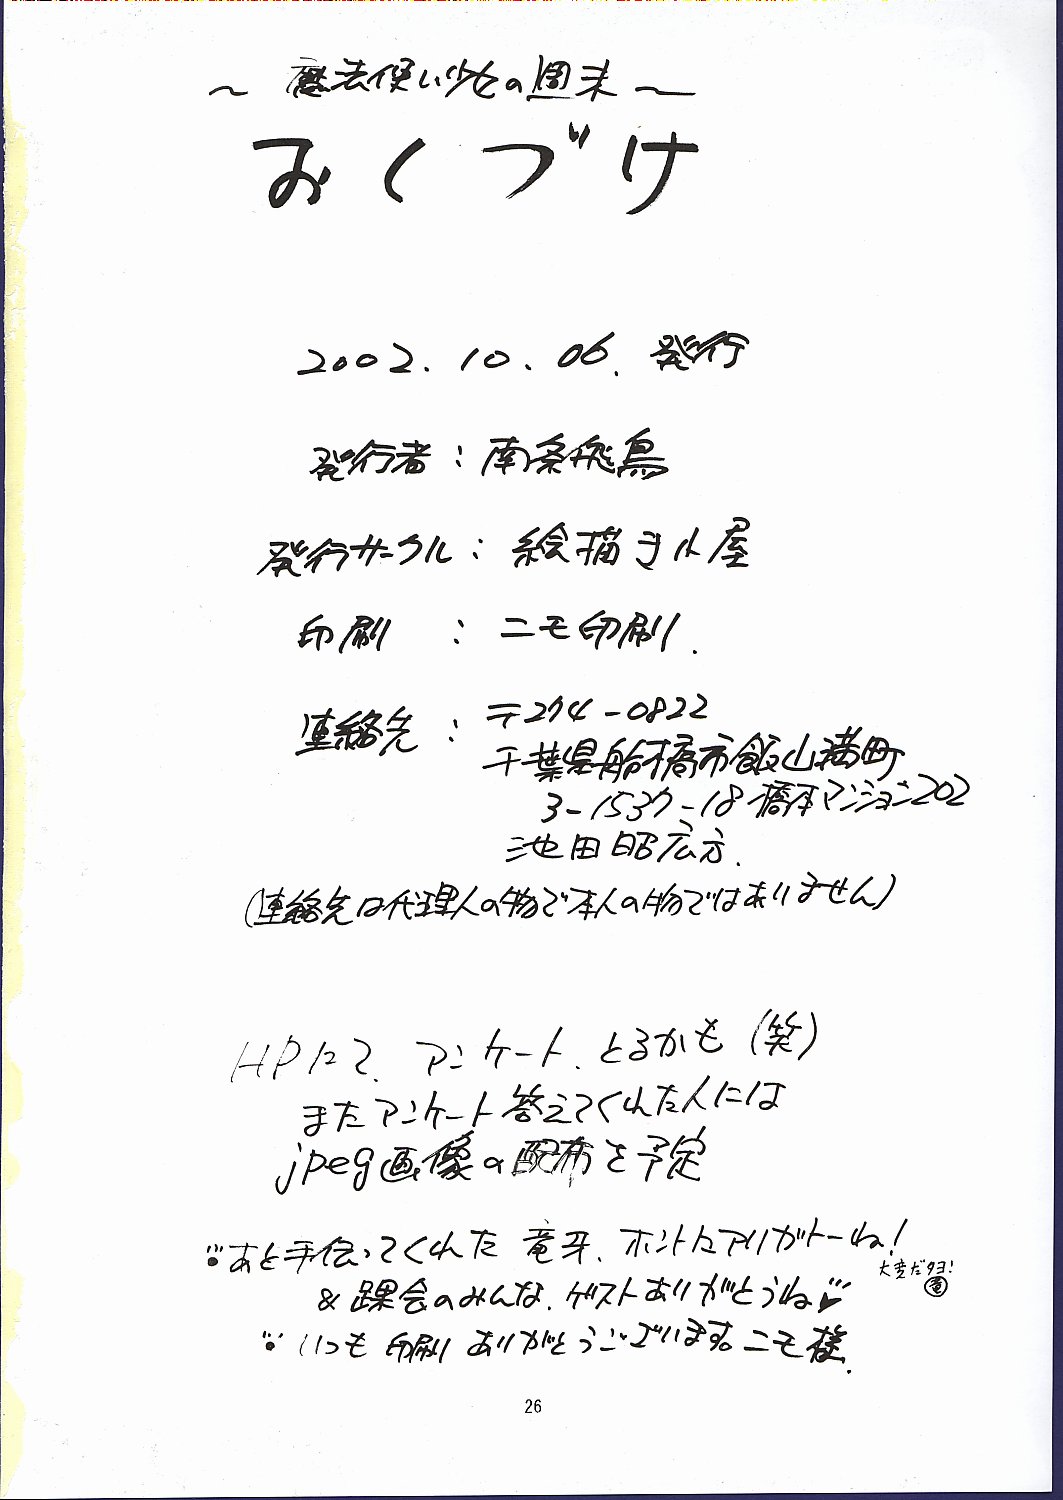 ～魔法使い少女の週末～
おくづけ
2002.10.06.発行
発行者：南条飛鳥
発行サークル：絵描き小屋
印刷：ニモ印刷.
連絡先：〒274-0822
千葉県船橋市飯山満町
3-1537-18橋本マンション202
池田昭広方.
(連絡先は代理人の物で本人の物ではありません)
HPにて.アンケート.とるかも(笑)
またアンケート答えてくれた人には
jpeg画像の配布を予定
あと手伝ってくれた竜牙.ホントにアリガトーね!
大変だタヨ!
竜
&踝会のみんな.ゲストありがとうね
いつも印刷ありがとうございます。ニモ様.
26